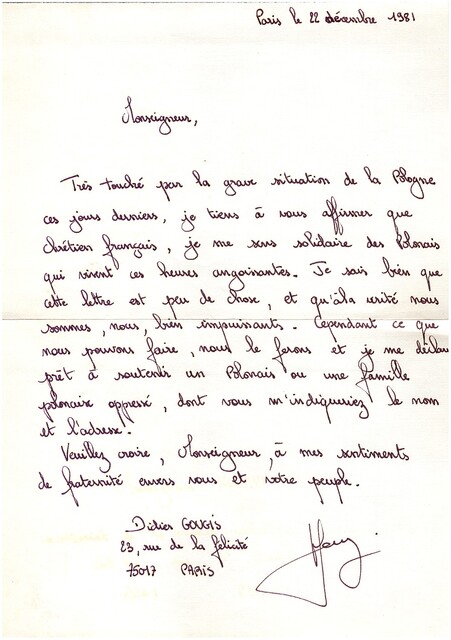 Paris le 22 décembre 1981
Monseigneur,
Très touché par la grave situation de la Pologne
ces jours derniers, je tiens à vous affirmer que
chrétien français, je me sens solidaire des Polonais
qui vivent ces heures angoissantes. Je sais bien que
cette lettre est peu de chose, et qu'à la vérité nous
sommes, nous, bien impuissants. Cependant ce que
nous pouvons faire, nous le ferons et je me déclare
prêt à soutenir un Polonais ou une famille
polonaise oppressé, dont vous m'indiqueriez le nom
et l'adresse.
Veuillez croire, Monseigneur, à mes sentiments
de fraternité envers vous et votre peuple.
Didier GOUGIS
23, rue de la félicité
75017 PARIS